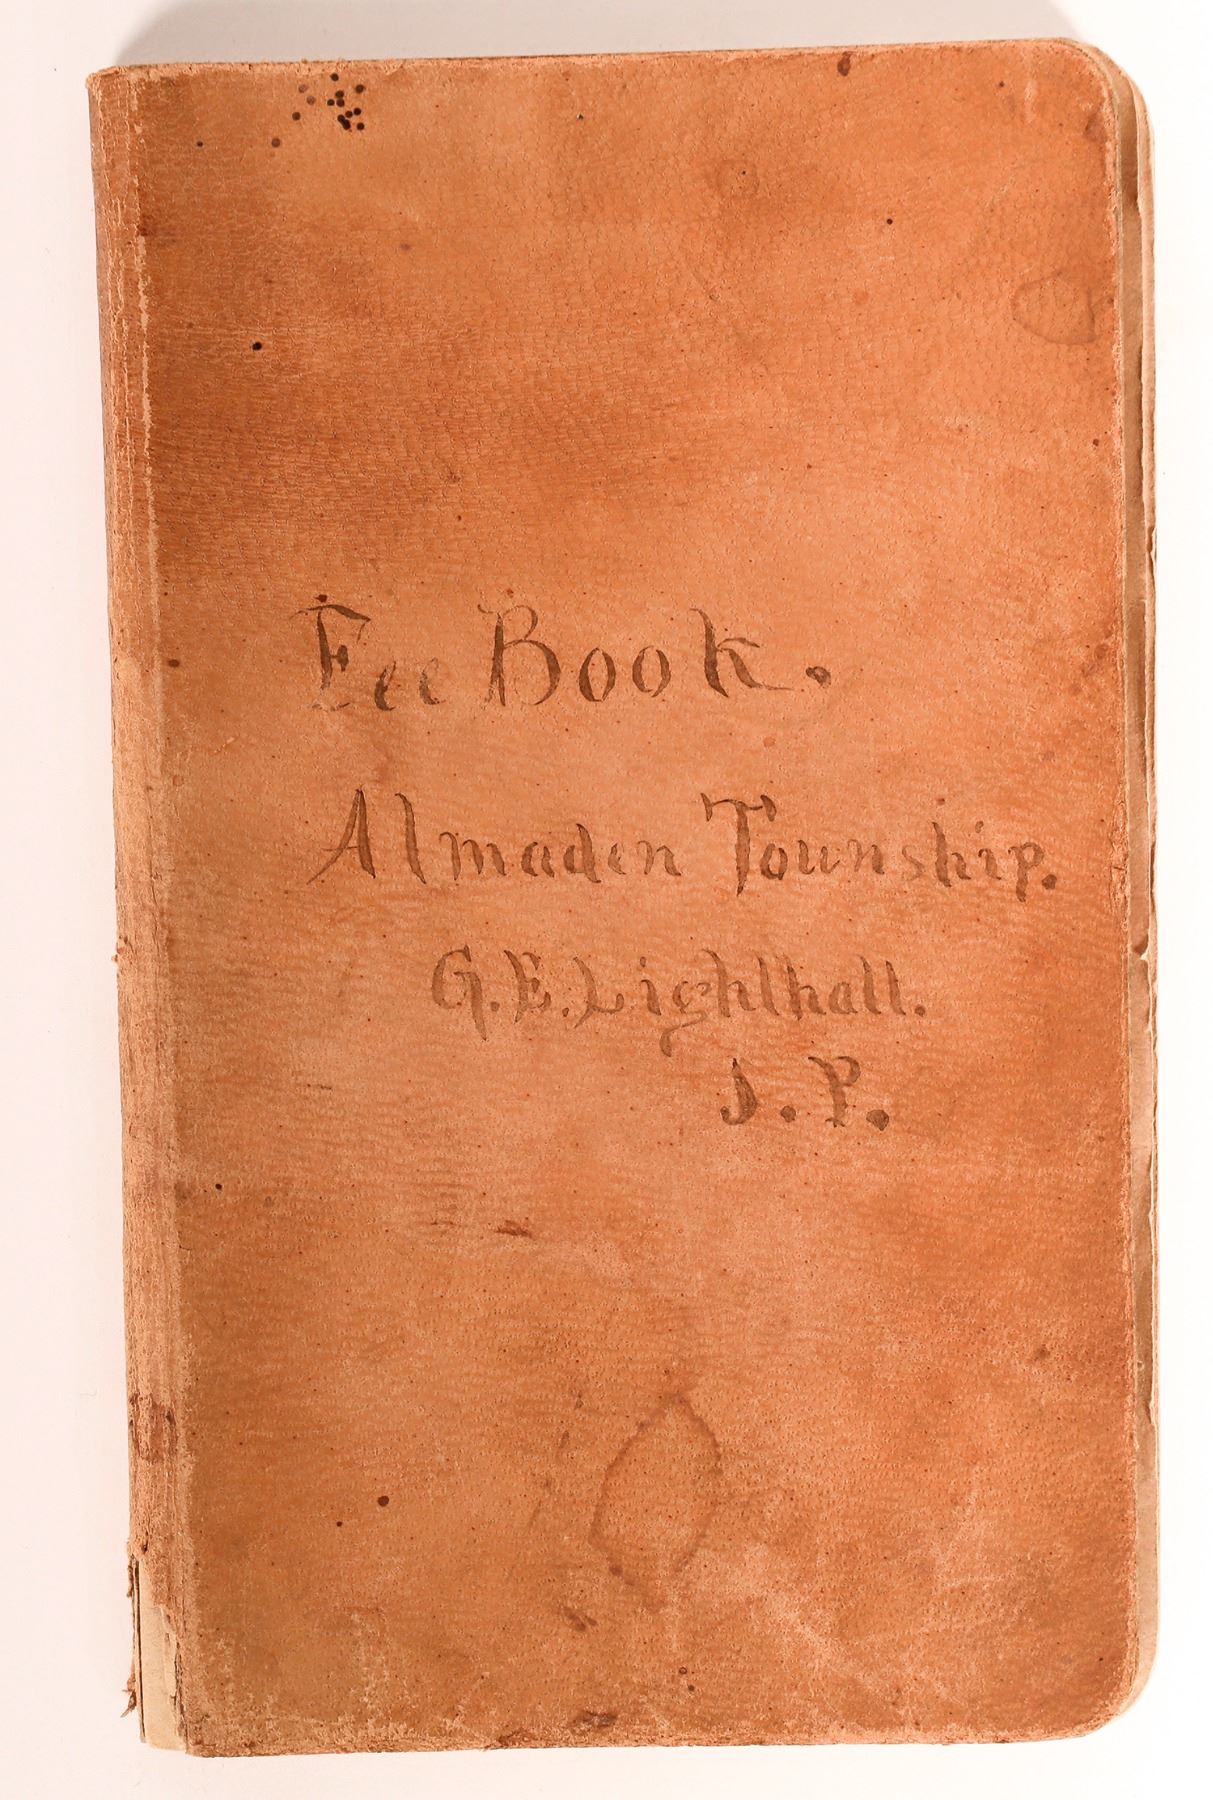 Fee Book.
Almaden Township.
G. E. Lighthall.
J. P.